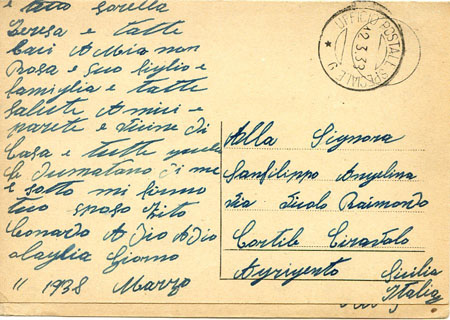 e tuo sorella
Teresa e tutte
Cari A Mia non
Rosa e suo figlio e
famiglia e tutte
salute Amici e
parite e vicine di
Casa e tutte quelle
che dumatano di me
e sotto mi firmo
tuo sposo Zito
Leonardo Adio Adio
Giorno
11 1938 Marzo
UFFICIO POSTALE SPECIALE 9
12.3.38
Alla Signora
Sanfilippo Angelina
Via Ticolo Raimondo
Cortile Ciravolo
Agrigento Sicilia
Italia